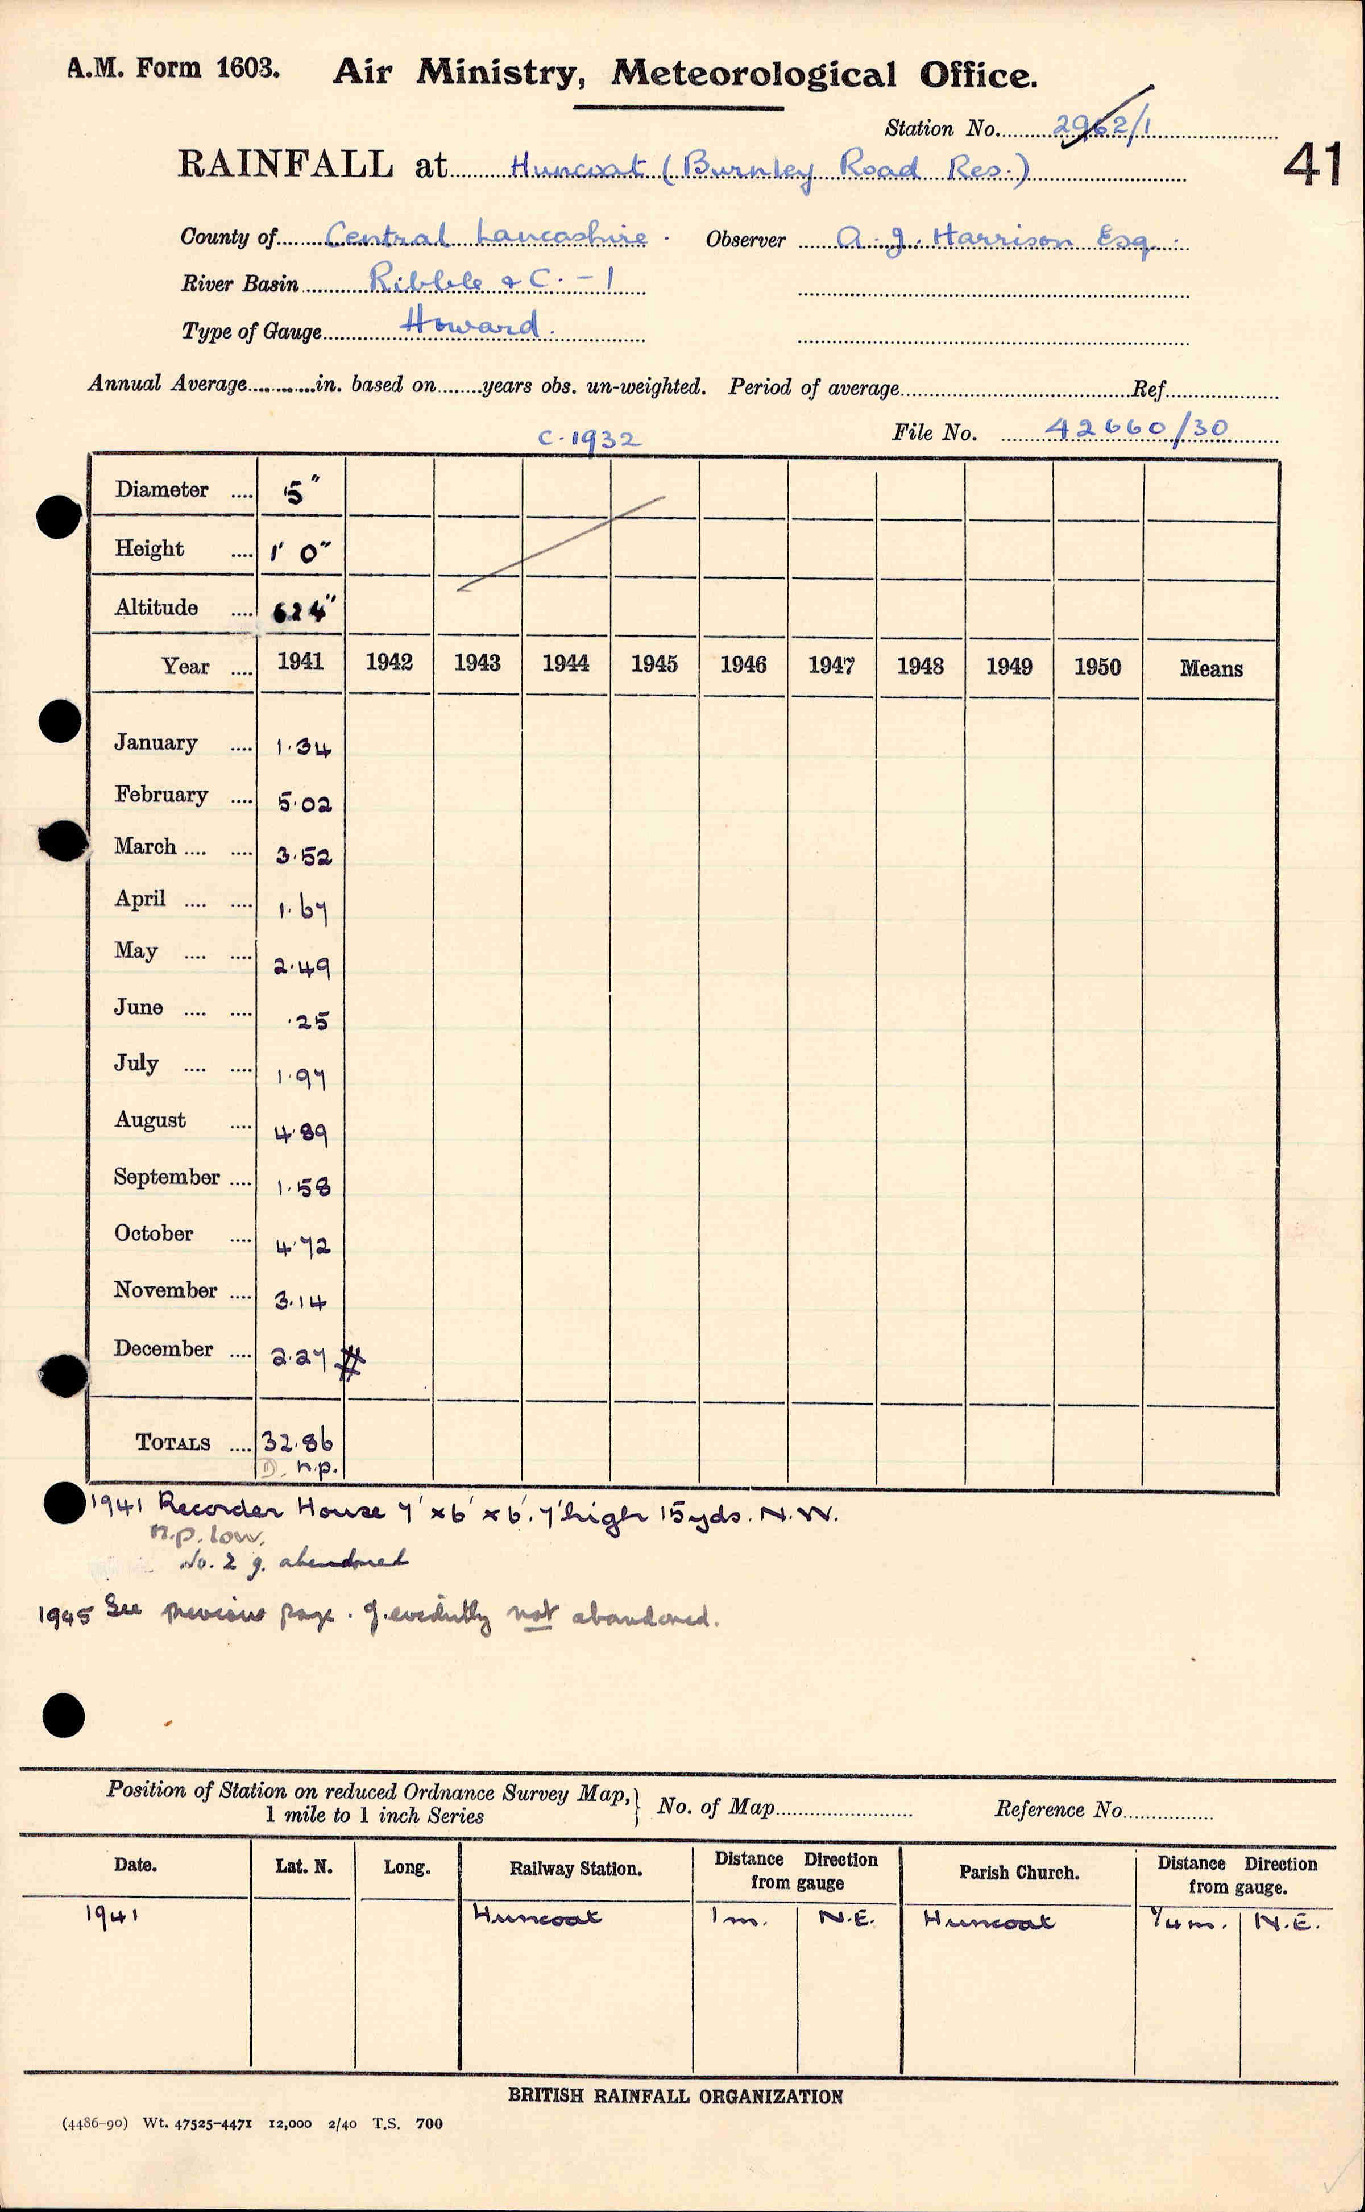 A.M. Form 1603. Air Ministry, Meteorological Office.
Station No. 2962/1
41
RAINFALL at Huncoat (Burnley Road Res.)
County of Central Lancashire. Observer A. J. Harrison Esq.
River Basin Ribble & C. - 1
Type of Gauge Howard.
Annual Average............in. based on........years obs. un-weighted. Period of average.................... Ref....................
C. 1932 File No. 42660/30
Diameter .... 5"
Height .... 1' 0"
Altitude .... 624"
Year .... 1941 1942 1943 1944 1945 1946 1947 1948 1949 1950 Means
January .... 1.34
February .... 5.02
March .... .... 3.52
April .... .... 1.67
May .... .... 2.49
June .... .... .25
July .... .... 1.97
August .... 4.89
September .... 1.58
October .... 4.72
November .... 3.14
December .... 2.27 #
TOTALS .... 32.86
D. n.p.
1941 Recorder House 7' x 6' x 6'. 7' high 15 yds. N.W.
n.p. low.
No. 2 g. abandoned
1945 See previous page. g. evidently not abandoned.
Position of Station on reduced Ordnance Survey Map, } No. of Map.................... Reference No................
1 mile to 1 inch Series
Date. Lat. N. Long. Railway Station. Distance Direction from gauge Parish Church. Distance Direction from gauge.
1941 Huncoat 1 m. N.E. Huncoat 1/4 m. N.E.
BRITISH RAINFALL ORGANIZATION
(4486-90) Wt. 47525-4471 12,000 2/40 T.S. 700